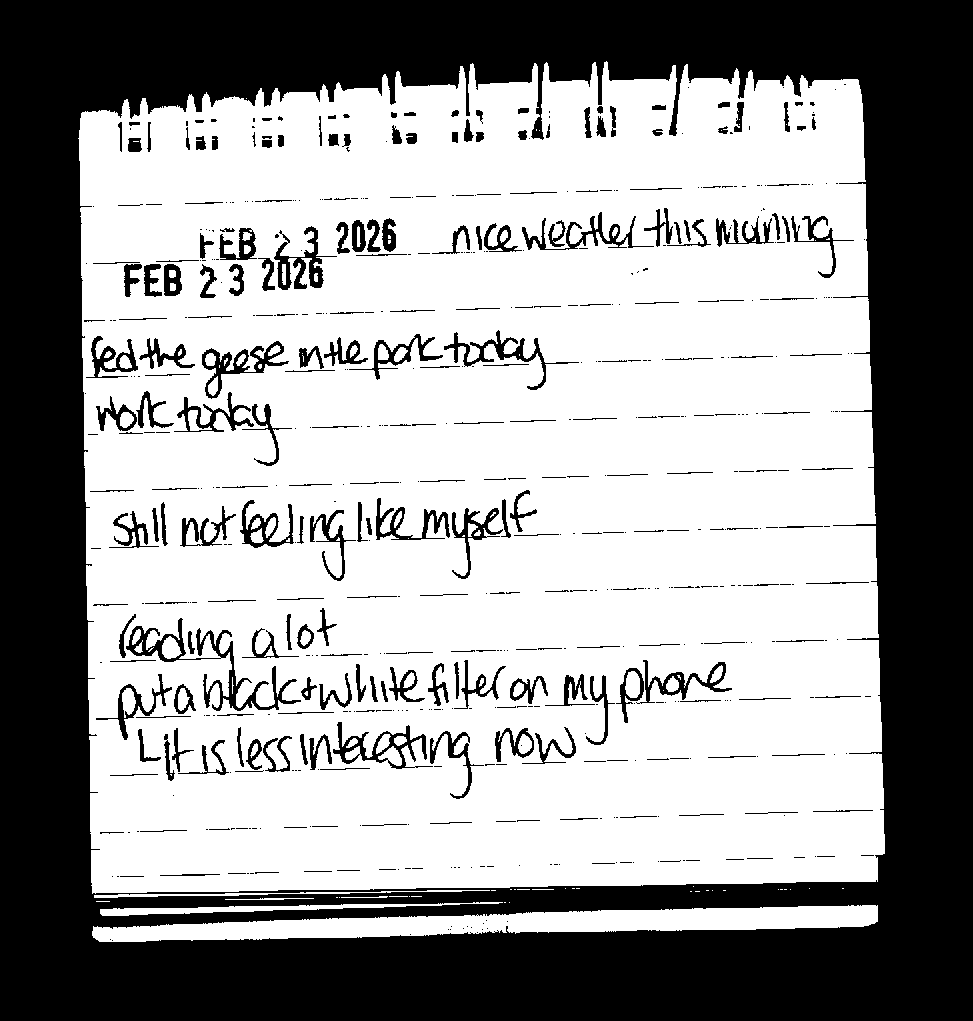 FEB 23 2026 nice weather this morning
FEB 23 2026
fed the geese in the park today
work today
still not feeling like myself
reading a lot
put a black + white filter on my phone
↳ it is less interesting now